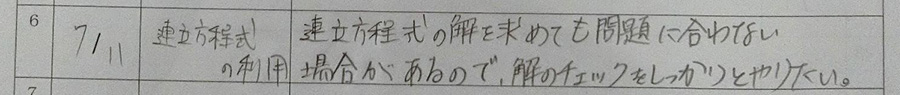 6
7/11
連立方程式
の利用
連立方程式の解を求めても問題に合わない
場合があるので、解のチェックをしっかりとやりたい。
7